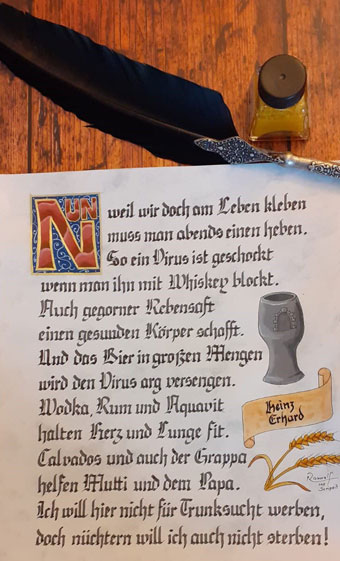 NUN weil wir doch am Leben kleben
muss man abends einen heben.
So ein Virus ist geschockt
wenn man ihn mit Whiskey blockt.
Auch gegorner Rebensaft
einen gesunden Körper schafft.
Und das Bier in großen Mengen
wird den Virus arg versengen.
Wodka, Rum und Aquavit
halten Herz und Lunge fit.
Calvados und auch der Grappa
helfen Mutti und dem Papa.
Ich will hier nicht für Trunksucht werben,
doch nüchtern will ich auch nicht sterben!
Heinz
Erhard